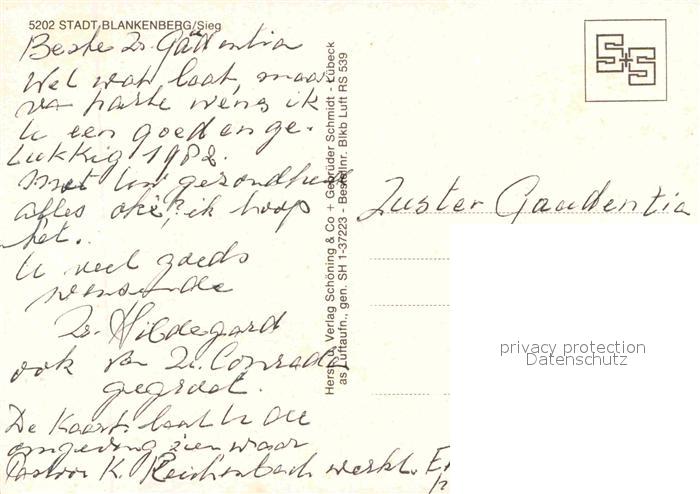 5202 STADT BLANKENBERG/Sieg
Beste Zr. Gaudentia
Wel wat laat, maar
van harte wens ik
U een goed en ge-
lukkig 1982.
Met Uw gezondheid
alles oké?, ik hoop
het..
U veel goeds
wensende
Zr. Hildegard
ook van Zr. Conrada
gegroet.
De Kaart laat U de
omgeving zien waar
Pastoor K. Reichenbach werkt.
Herst. u. Verlag Schöning & Co + Gebrüder Schmidt - Lübeck
as Luftaufn., gen. SH 1-37223 - Bestellnr. Blkb Luft RS 539
S+S
Zuster Gaudentia
privacy protection
Datenschutz